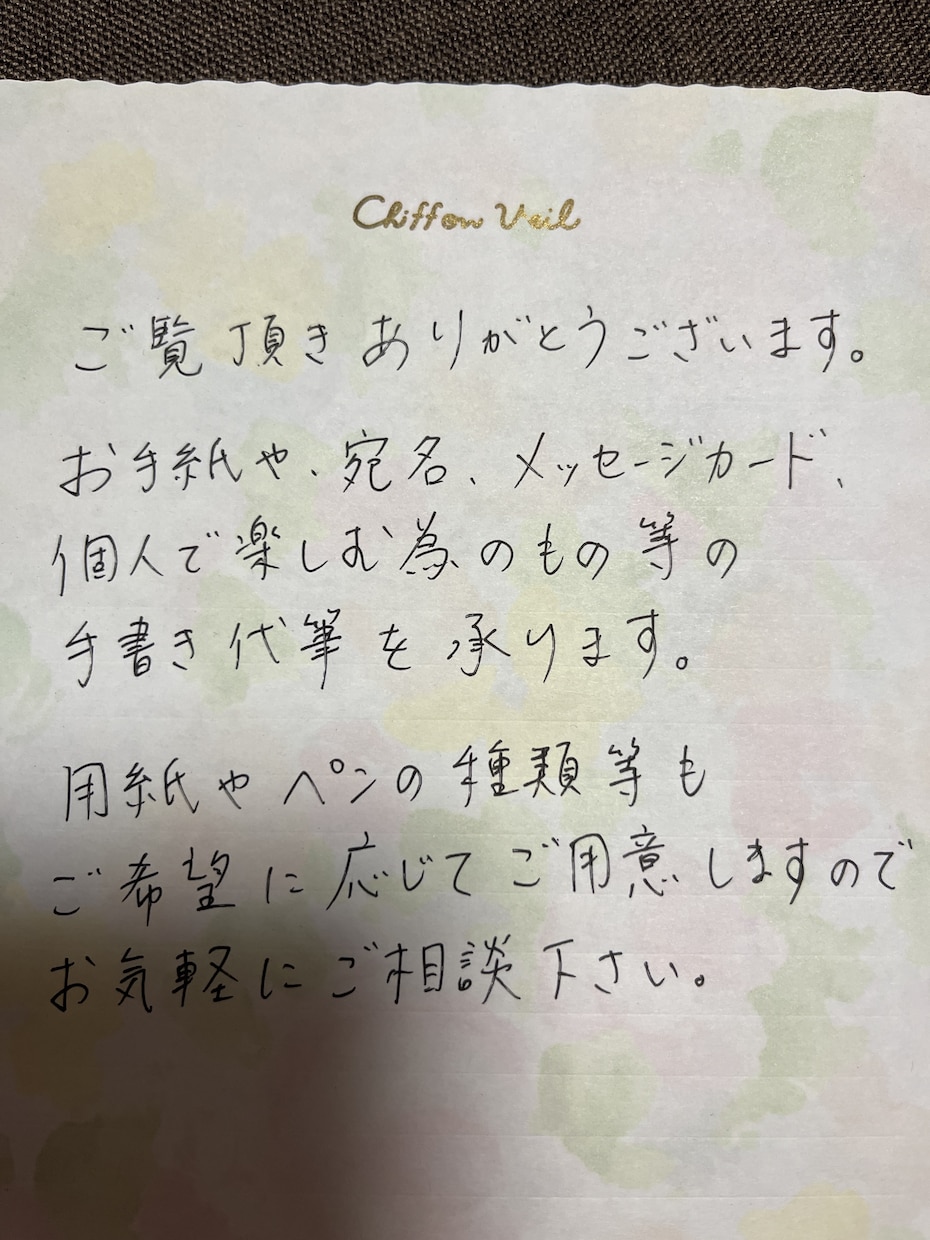 Chiffon Veil
ご覧頂きありがとうございます。
お手紙や、宛名、メッセージカード、
個人で楽しむ為のもの等の
手書き代筆を承ります。
用紙やペンの種類等も
ご希望に応じてご用意しますので
お気軽にご相談下さい。